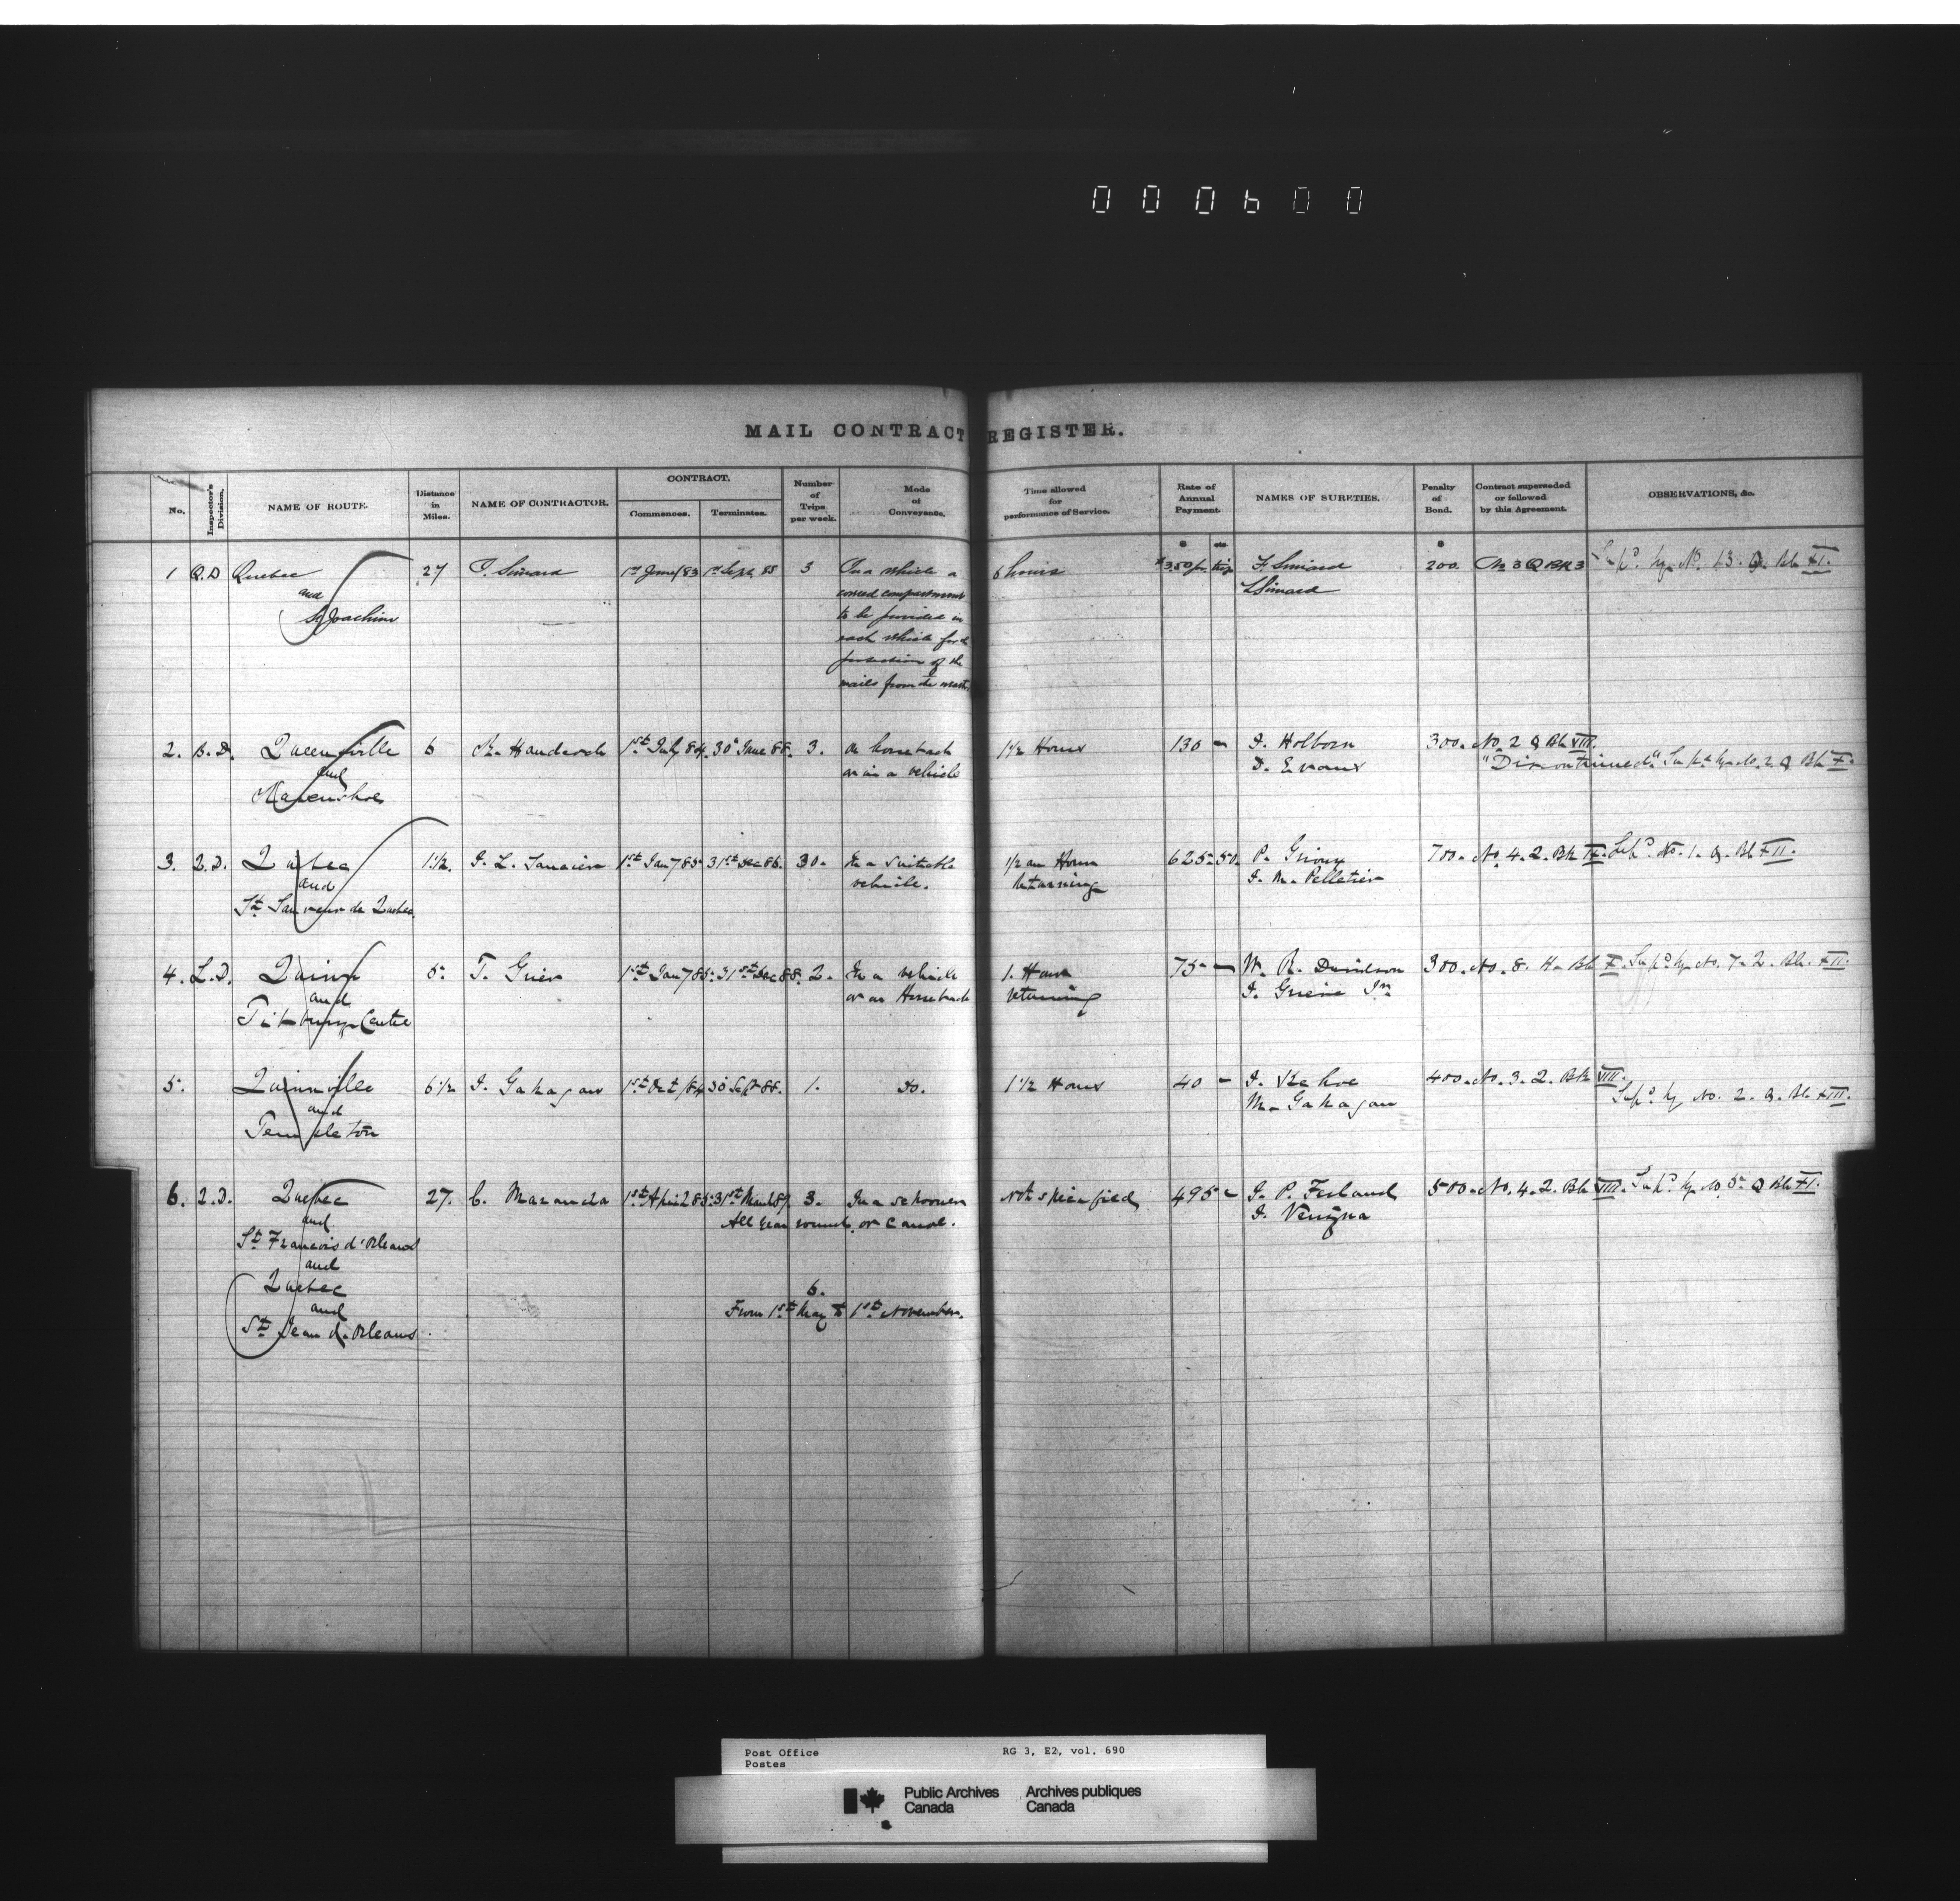 000600
MAIL CONTRACT REGISTER.
No. Inspector's Division. NAME OF ROUTE. Distance in Miles. NAME OF CONTRACTOR. CONTRACT. Commences. Terminates. Number of Trips per week. Mode of Conveyance. Time allowed for performance of Service. Rate of Annual Payment. NAMES OF SURETIES. Penalty of Bond. Contract superseded or followed by this Agreement. OBSERVATIONS, &c.
$ cts. $
1 Q.D Quebec 27 T. Simard 1st June/83 1st Sept 85 3 In a vehicle a 6 hours $3.50 per trip F. Simard 200. No 3 Q Bk 3 Sup'd by No 13. Q Bk XI.
and covered compartment L Simard
St Joachim to be provided in
each vehicle for the
protection of the
mails from the
2. B.D. Queensville 6 1st July 84. 30 June 88. 3. On horseback 1 1/2 Hours 130 - J. Holborn 300. No. 2 Q Bk VIII.
and or in a vehicle D. Evans "Discontinued" Sup'd by No. 2 Q Bk X.
3. Q.D. Quebec 1 1/2. J. L. 1st Jany 85 31st Dec 86. 30. In a suitable 1/2 an Hour 625 50. P. 700. No. 4. Q. Bk IX. Sup'd No. 1. Q. Bk XII.
and vehicle. Returning J. M. Pelletier
St Sauveur de Quebec.
4. L.D. Quinn 5. T. Grier 1st Jany 85. 31st Dec 88. 2. In a vehicle 1. Hour 75 - W. R. Davidson 300. No. 8. H. Bk X. Sup'd by No. 7. Q. Bk. XII.
and or on Horseback returning J. Jnr
Tilbury Centre
5. Quinnville 6 1/2 J. Gahagan 1st Oct/84 30 Sept 88. 1. Do. 1 1/2 Hours 40 - J. Kehoe 400. No. 3. Q. Bk VIII.
and M. Gahagan Sup'd by No. 2. Q. Bk XIII.
Templeton
6. Q.D. Quebec 27. C. Maranda 1st April 85. 31st March 89. 3. In a schooner Not specified 495 - G. P. Ferland 500. No. 4. Q. Bk VIII. Sup'd by No 5. Q Bk XI.
and All year round. or canoe. J.
St Francois d'Orleans
and
Quebec 6.
and From 1st May to 1st November.
St Jean d'Orleans.
Post Office RG 3, E2, vol. 690
Postes
Public Archives Archives publiques
Canada Canada